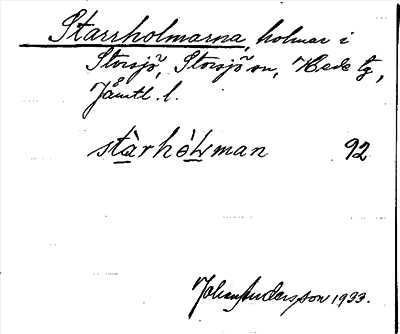 Starrholmarna, holmar i
Storsjö, Storsjö sn, Hede tg,
Jämtl. l.
stàrhòɫman 92
Johan Andersson 1933.